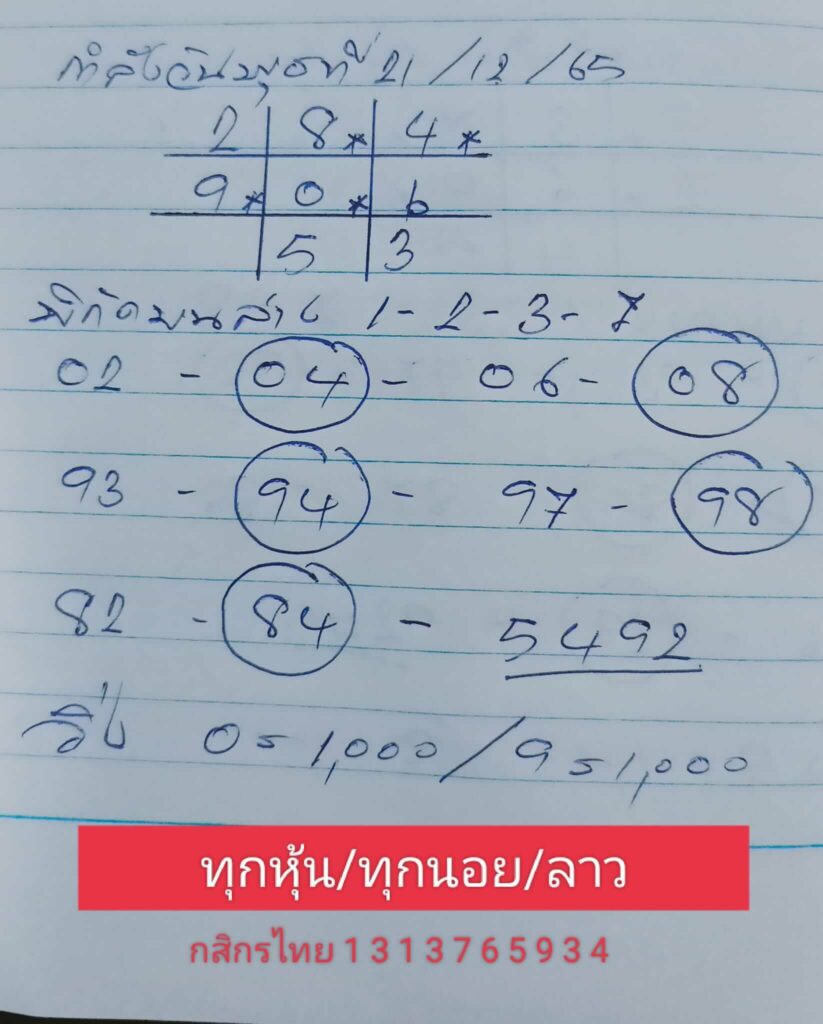 กำลังวันพุธที่ 21/12/65
2 8* 4*
9* 0* 6
5 3
พิกัดบนล่าง 1-2-3-7
02 - 04 - 06 - 08
93 - 94 - 97 - 98
82 - 84 - 5492
วิ่ง 0=1,000/9=1,000
ทุกหุ้น/ทุกนอย/ลาว
กสิกรไทย 1 3 1 3 7 6 5 9 3 4